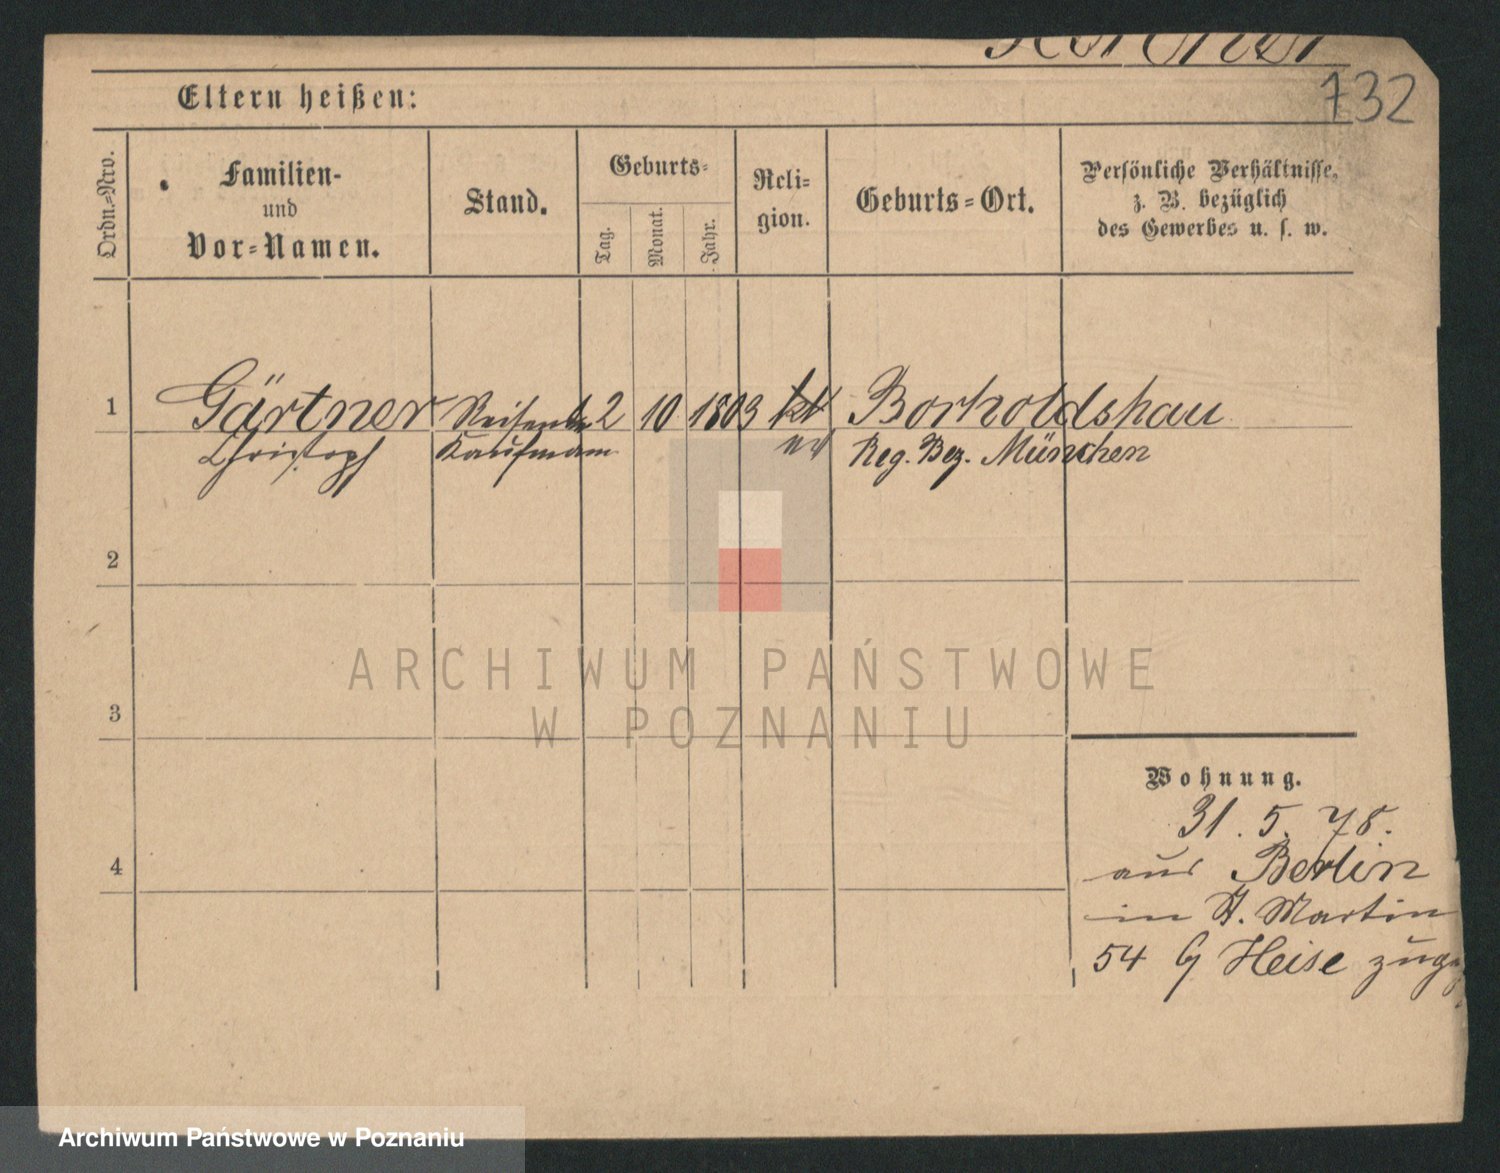 732
Eltern heißen:
Ordn.=Nro.
Familien-
und
Vor=Namen.
Stand.
Geburts=
Tag.
Monat.
Jahr.
Reli=
gion.
Geburts=Ort.
Persönliche Verhältnisse,
z. B. bezüglich
des Gewerbes u. s. w.
1 Gärtner 2 10 1803 Borholdshau
Christoph Kaufmann Reg. Bez. München
2
3
4
ARCHIWUM PAŃSTWOWE
W POZNANIU
Wohnung.
31. 5. 78.
aus Berlin
in St. Martin
54 Heise
Archiwum Państwowe w Poznaniu